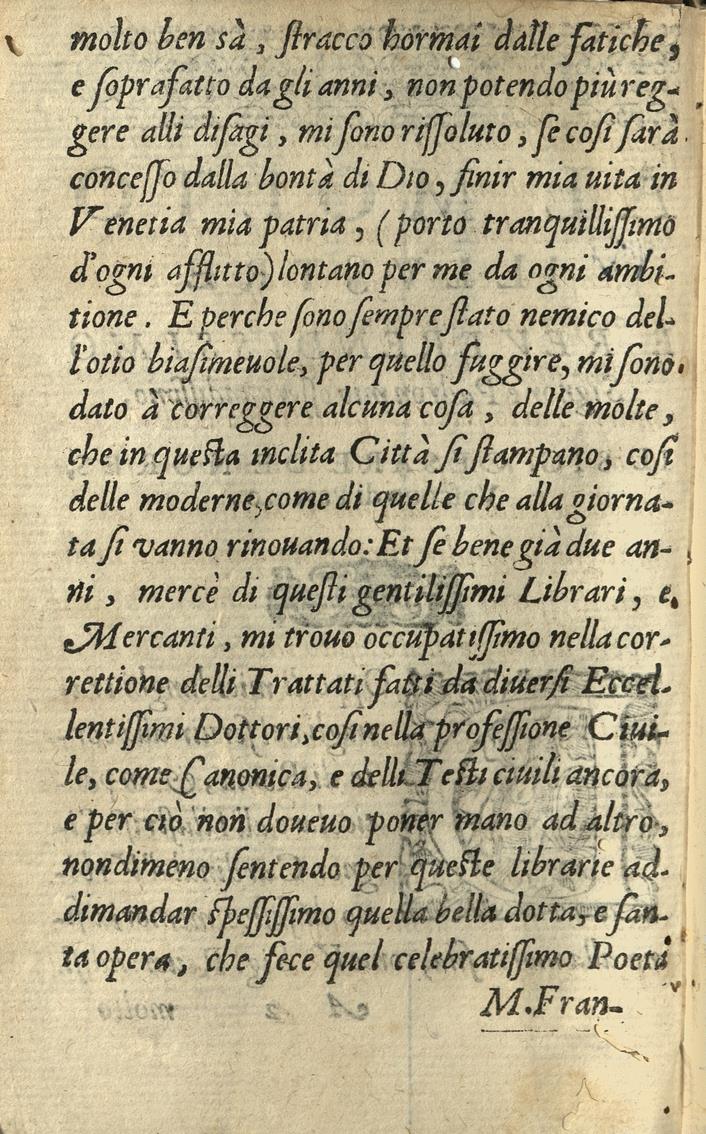 molto ben sà, ſtracco hormai dalle fatiche,
e ſoprafatto da gli anni, non potendo più reg-
gere alli diſagi, mi ſono riſſoluto, ſe coſi ſarà
conceſſo dalla bontà di Dio, finir mia uita in
Venetia mia patria, (porto tranquilliſſimo
d'ogni afflitto) lontano per me da ogni ambi-
tione. E perche ſono ſempre ſtato nemico del-
l'otio biaſimeuole, per quello fuggire, mi ſono
dato à correggere alcuna coſa, delle molte,
che in queſta inclita Città ſi ſtampano, coſi
delle moderne, come di quelle che alla giorna-
ta ſi vanno rinouando: Et ſe bene già due an-
ni, mercè di queſti gentiliſſimi Librari, e
Mercanti, mi trouo occupatiſſimo nella cor-
rettione delli Trattati fatti da diuerſi Eccel-
lentiſſimi Dottori, coſi nella profeſſione Ciui-
le, come Canonica, e delli Teſti ciuili ancora,
e per ciò non doueuo poner mano ad altro,
nondimeno ſentendo per queſte librarie ad-
dimandar ſpeſſiſſimo quella bella dotta, e ſan-
ta opera, che fece quel celebratiſſimo Poeta
M. Fran-